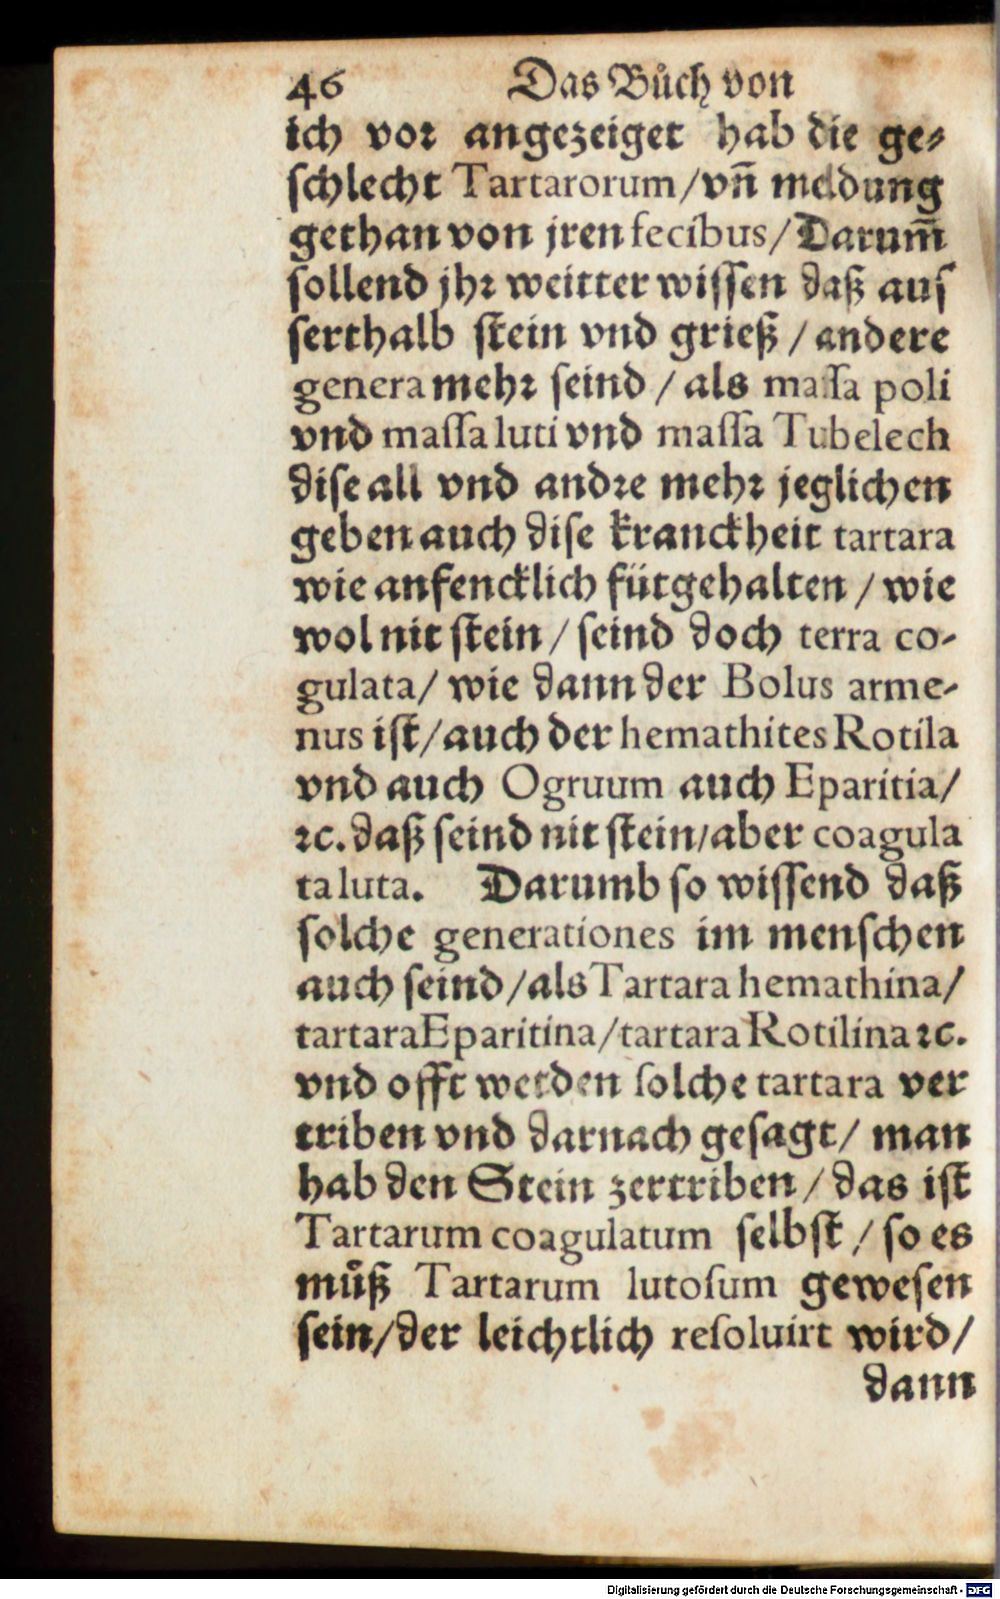 46 Das Bůch von
ich vor angezeiget hab die ge-
schlecht Tartarorum/vñ meldung
gethan von jren fecibus/Darum̃
sollend jhr weitter wissen daß aus
serthalb stein vnd grieß/andere
genera mehr seind/als massa poli
vnd massa luti vnd massa Tubelech
dise all vnd andre mehr jeglichen
geben auch dise kranckheit tartara
wie anfencklich fürgehalten/wie
wol nit stein/seind doch terra co-
gulata/wie dann der Bolus arme-
nus ist/auch der hemathites Rotila
vnd auch Ogruum auch Eparitia/
ꝛc. daß seind nit stein/aber coagula
ta luta. Darumb so wissend daß
solche generationes im menschen
auch seind/als Tartara hemathina/
tartara Eparitina/tartara Rotilina ꝛc.
vnd offt werden solche tartara ver
triben vnd darnach gesagt/man
hab den Stein zertriben/das ist
Tartarum coagulatum selbst/so es
můß Tartarum lutosum gewesen
sein/der leichtlich resoluirt wird/
dann
Digitalisierung gefördert durch die Deutsche Forschungsgemeinschaft - DFG